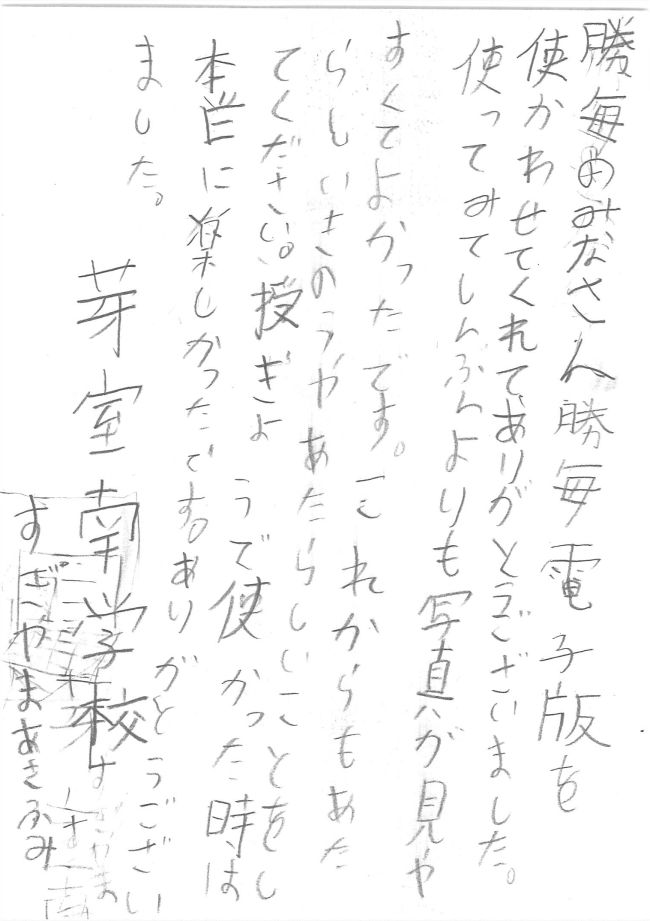 勝毎のみなさん勝毎電子版を
使かわせてくれてありがとうございました。
使ってみてしんぶんよりも写真が見や
すくてよかったです。これからもあた
らしいきのうやあたらしいことをし
てください。授ぎょうで使かった時は
本当に楽しかったです。ありがとうござい
ました。
芽室南学校
すぎやまあきふみ